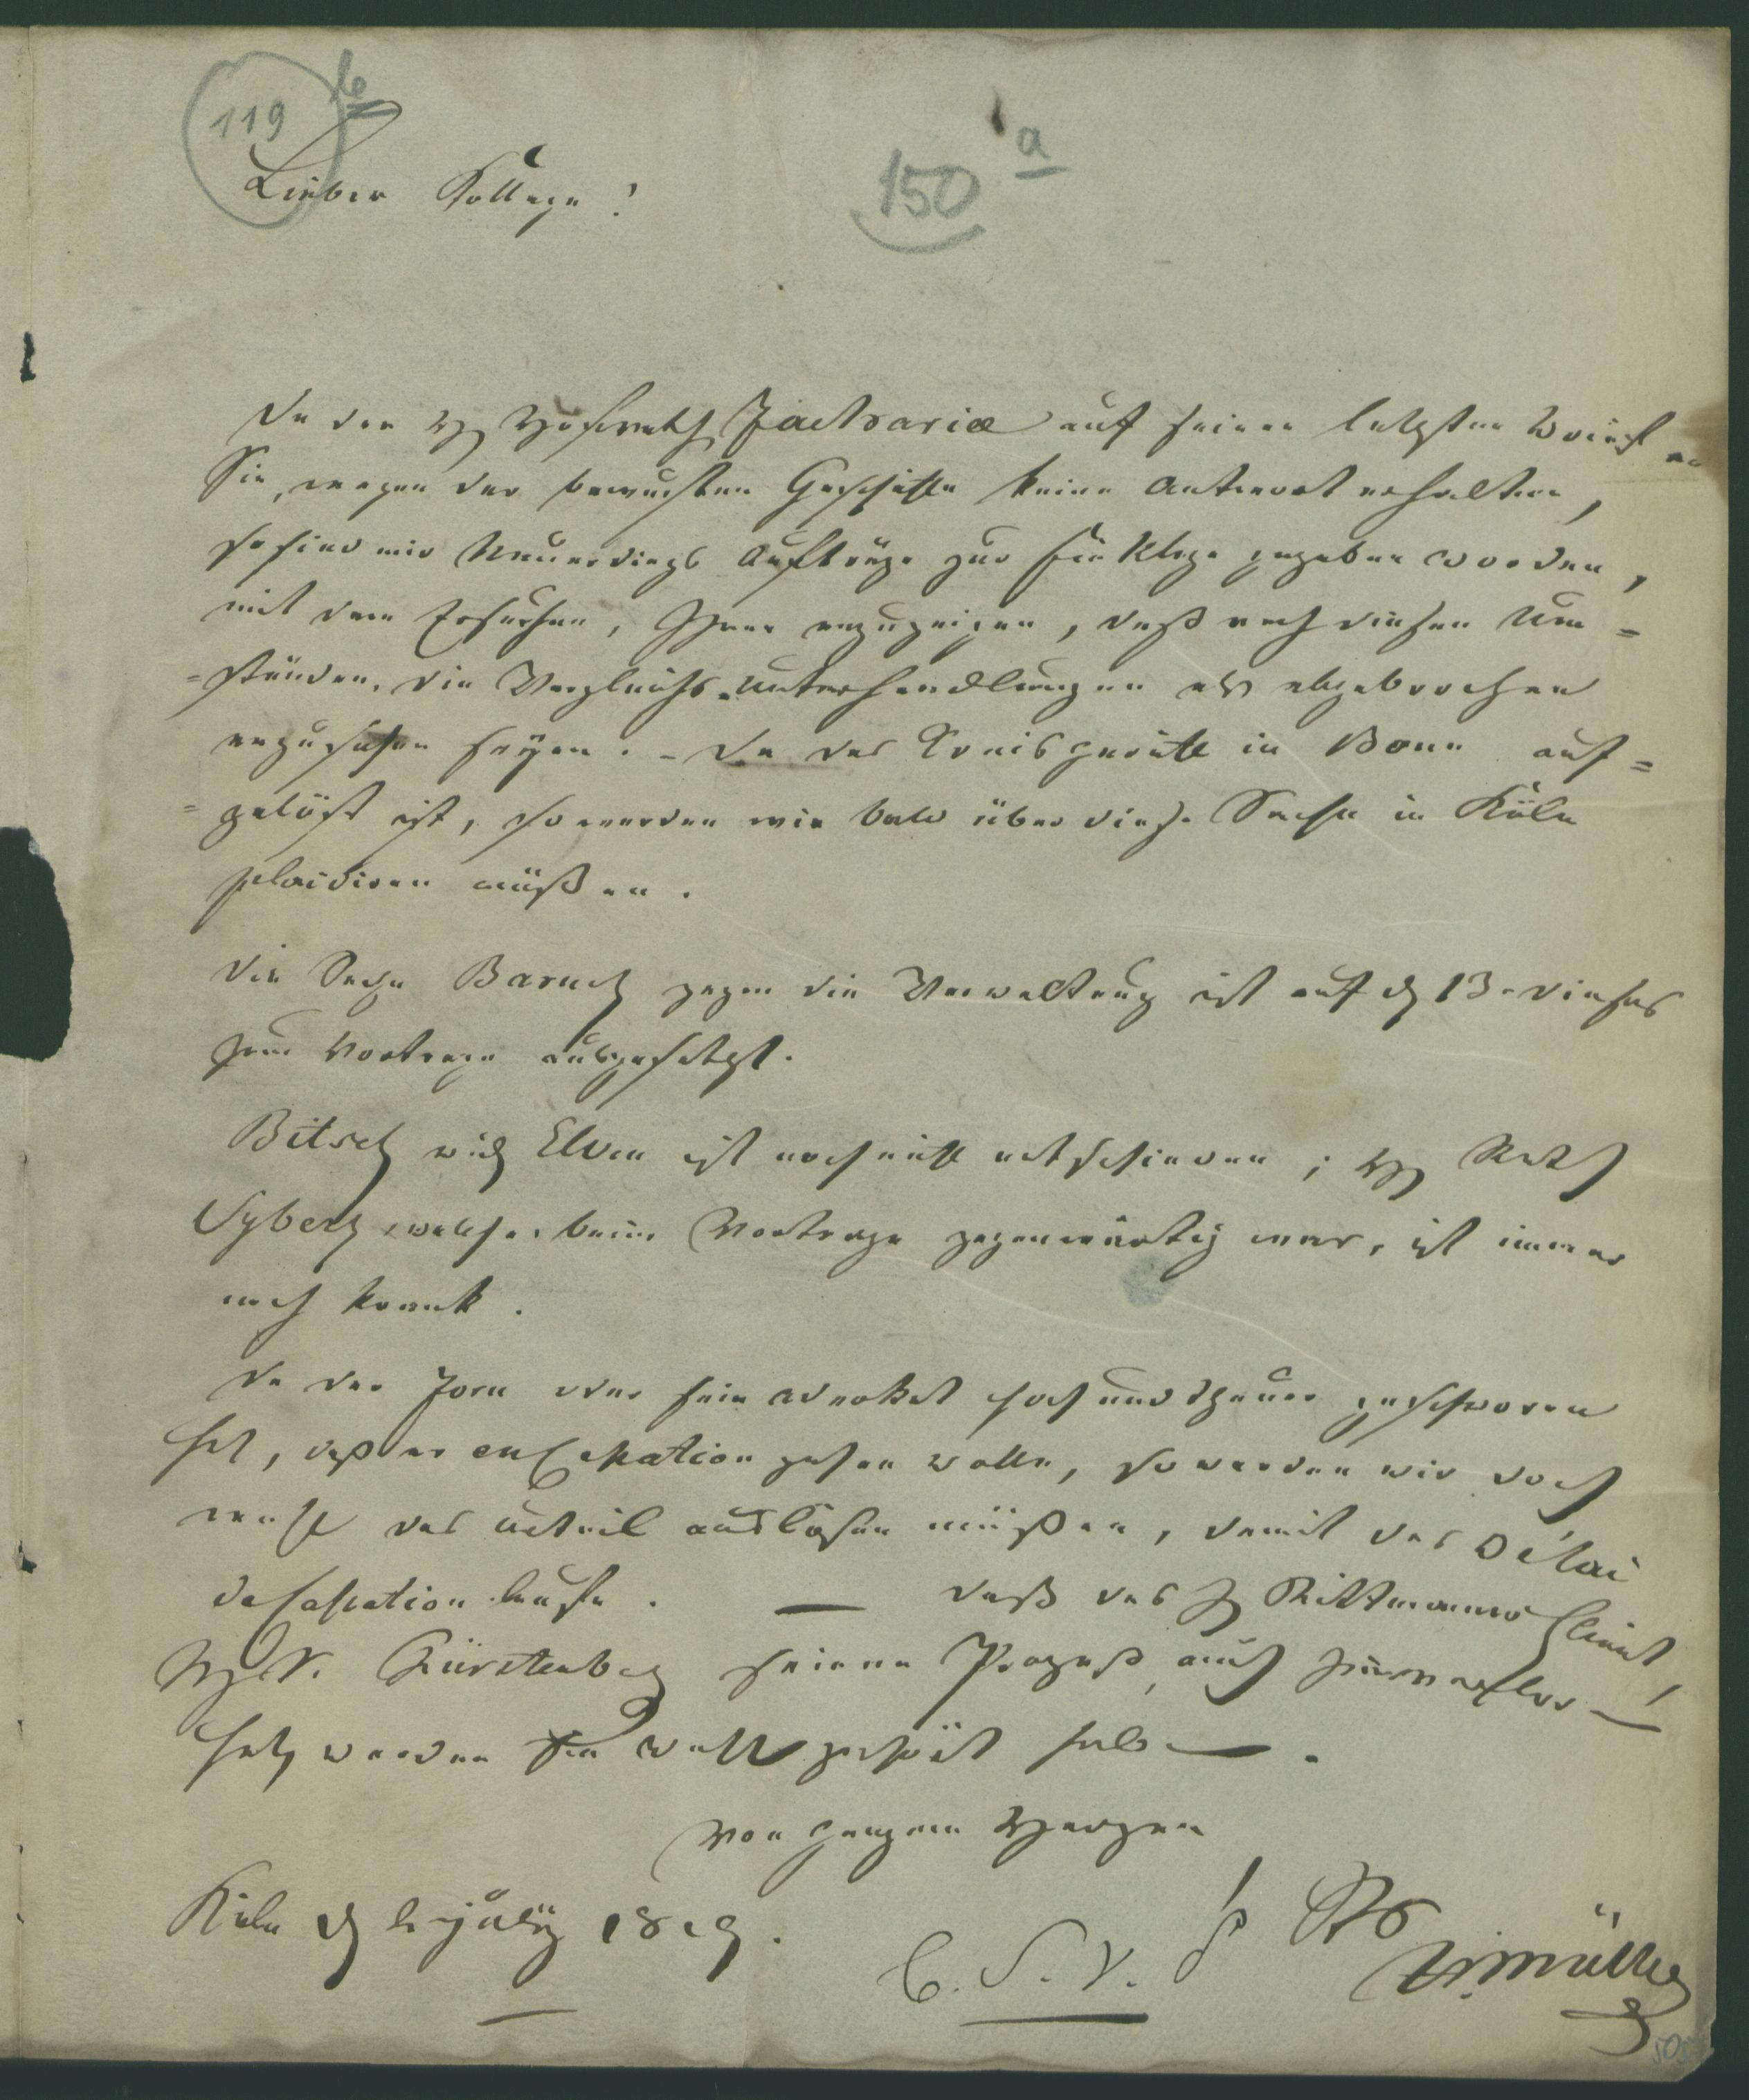 119 b
150 a
Lieber Kollege!
Da der H Hofrath Zachariæ auf seinen letzten Brief an
Sie, wegen der bewusten Geschäfte keine Antwort erhalten,
so sind mir Neuerdings Aufträge zur Klage gegeben worden,
mit dem Ersuchen, Ihnen anzuzeigen, daß nach diesen Um=
=ständen, die Vergleichs-Unterhandlungen als abgebrochen
anzusehen seyen. - Da das Kreisgericht in Bonn auf=
=gelößt ist, so werden wir bald über diese Sache in Köln
plaidiren müßen.
Die Sache Baruch gegen die Verwaltung ist auf d 13. dieses
zum Vortrage ausgesetzt.
Bitsch wid Elven ist noch nicht entschieden; H Rath
Syberz, welcher beim Vortrage gegenwärtig war, ist immer
noch krank.
Da der Zorn oder sein Advokat hoch und theuer geschworen
hat, daß er en Cassation gehen wolle, so werden wir doch
das Urteil auslösen müßen, damit das Délai
de Cassation laufe. — daß des H Rittmanns Client
H v. Fürstenberg seinen Prozeß auch
hat, werden Sie wohl gehört haben.
Von ganzem Herzen
Köln d July 1819.
müller